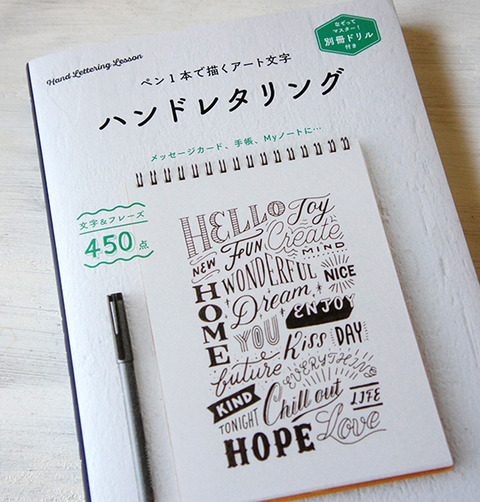 Hand Lettering Lesson
なぞって
マスター！
別冊ドリル
付き
ペン1本で描くアート文字
ハンドレタリング
メッセージカード、手帳、Myノートに…
文字&フレーズ
450点
HELLO Joy
NEW FUN Create
MIND
HOME
WONDERFUL NICE
Dream
ENJOY
YOU Kiss DAY
future EVERYTHING
KIND Chill out LIFE
TONIGHT
HOPE Love